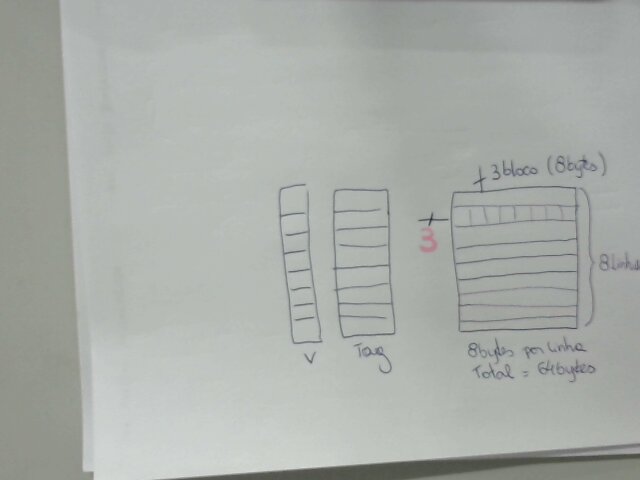 3 bloco (8bytes)
3
8 Linhas
V
Tag
8bytes por linha
Total = 64bytes